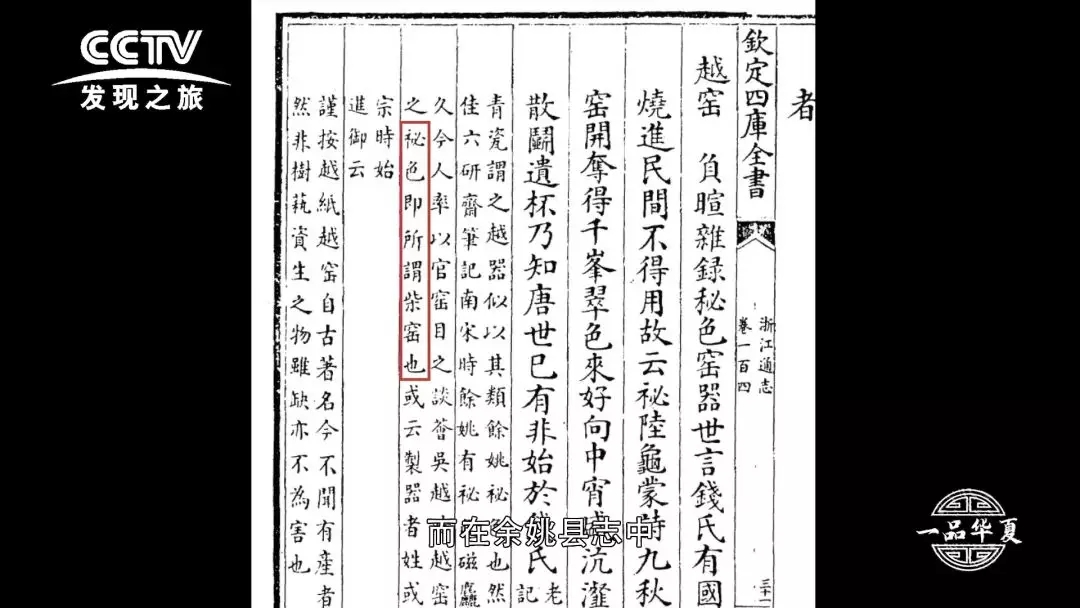 CCTV
发现之旅
者
欽定四庫全書
浙江通志
卷一百四
三十一
越窑 負暄雜録秘色窑器世言錢氏有國
燒進民間不得用故云祕陸龜蒙詩九秋
窑開奪得千峯翠色來好向中宵盛沆瀣
散鬭遺杯乃知唐世已有非始於氏
老
記
青瓷謂之越器似以其類餘姚祕也然
佳六研齋筆記南宋時餘姚有秘磁麤
久今人率以官窑目之談薈吳越越窑
之祕色即所謂柴窑也或云製器者姓或
宗時始
進御云
謹按越紙越窑自古著名今不聞有産者
然非樹蓺資生之物雖缺亦不為害也
而在余姚县志中
一品华夏